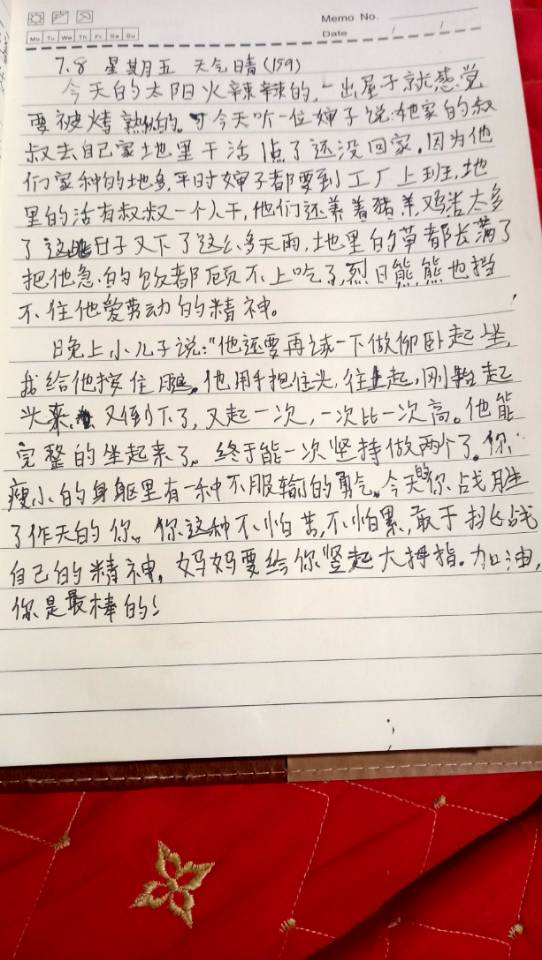 Memo No.
Mo Tu We Th Fr Sa Su
Date / /
7.8 星期五 天气晴(159)
今天的太阳火辣辣的,一出屋子就感觉
要被烤熟似的。今天听一位婶子说:她家的叔
叔去自己家地里干活1点了还没回家。因为他
们家种的地多,平时婶子都要到工厂上班,地
里的活有叔叔一个人干,他们还养着猪羊鸡活太多
了这些日子又下了这么多天雨,地里的草都长满了
把他急的饭都顾不上吃了,烈日熊熊也挡
不住他爱劳动的精神。
晚上小儿子说:"他还要再试一下做仰卧起坐,
我给他按住腿。他用手抱住头,往上起,刚抬起
头来,又倒下了,又起一次,一次比一次高。他能
完整的坐起来了。终于能一次坚持做两个了。你
瘦小的身躯里有一种不服输的勇气。今天的你战胜
了作天的你。你这种不怕苦,不怕累,敢于挑战
自己的精神,妈妈要给你竖起大拇指。加油,
你是最棒的!